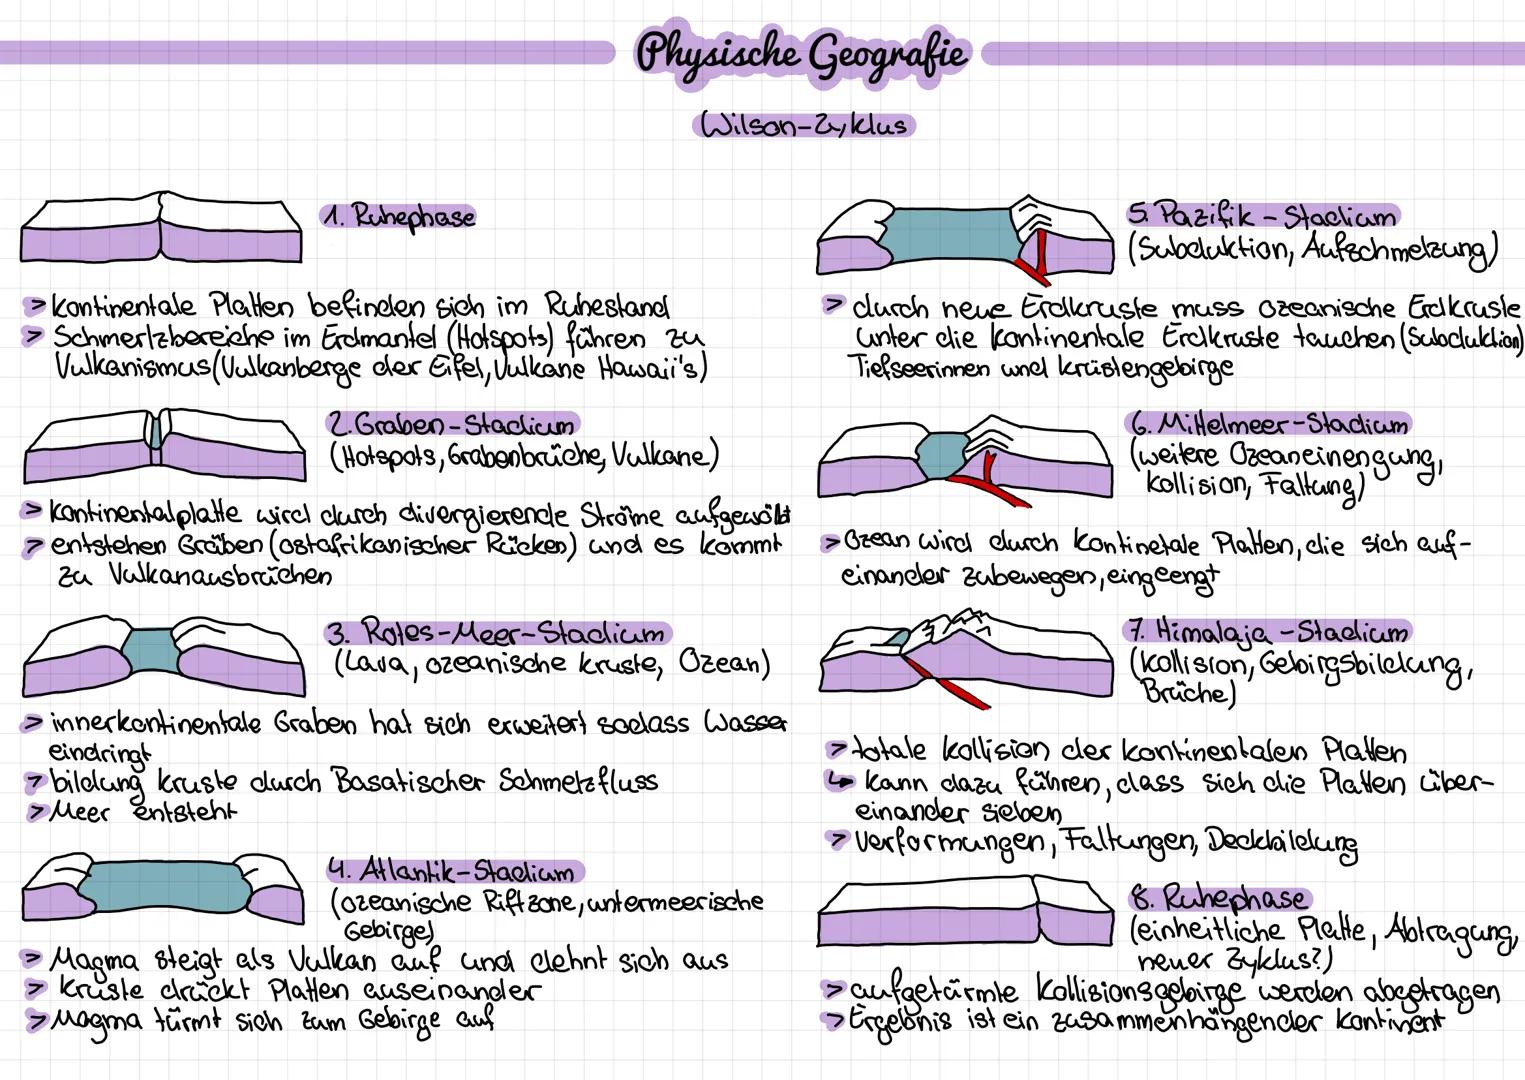 Physische Geografie
Wilson-Zyklus
1. Ruhephase
> kontinentale Platten befinden sich im Ruhestand
> Schmerlzbereiche im Erdmantel (Hotspots) führen zu
Vulkanismus (Vulkanberge der Eifel, Vulkane Hawaii's)
2. Graben-Stadium
(Hotspots, Grabenbrüche, Vulkane)
> Kontinentalplatte wird durch divergierende Ströme aufgewölbt
> entstehen Gräben (ostafrikanischer Rücken) und es kommt
zu Vulkanausbrüchen
3. Rotes-Meer-Stadium
(Lava, ozeanische kruste, Ozean)
> innerkontinentale Graben hat sich erweitert sodass Wasser
eindringt
> bildung kruste durch Basatischer Schmelzfluss
> Meer entsteht
4. Atlantik-Stadium
(ozeanische Riftzone, untermeerische
Gebirge)
> Magma steigt als Vulkan auf und dehnt sich aus
> kruste drückt Platten auseinander
> Magma türmt sich zum Gebirge auf
5. Pazifik - Stadium
(Subduktion, Aufschmelzung)
> durch neue Erdkruste muss ozeanische Erdkruste
unter die kontinentale Erdkruste tauchen (Subduktion)
Tiefseerinnen und krüstengebirge
6. Mittelmeer-Stadium
(weitere Ozeaneinengung,
kollision, Faltung)
> Ozean wird durch kontinetale Platten, die sich auf-
einander zubewegen, eingeengt
7. Himalaja - Stadium
(kollision, Gebirgsbildung,
Brüche)
> totale kollision der kontinentalen Platten
↳ kann dazu führen, dass sich die Platten über-
einander sieben
> Verformungen, Faltungen, Deckbildung
8. Ruhephase
(einheitliche Platte, Abtragung,
neuer Zyklus?)
> aufgetürmte Kollisionsgebirge werden abgetragen
> Ergebnis ist ein zusammenhängender kontinent